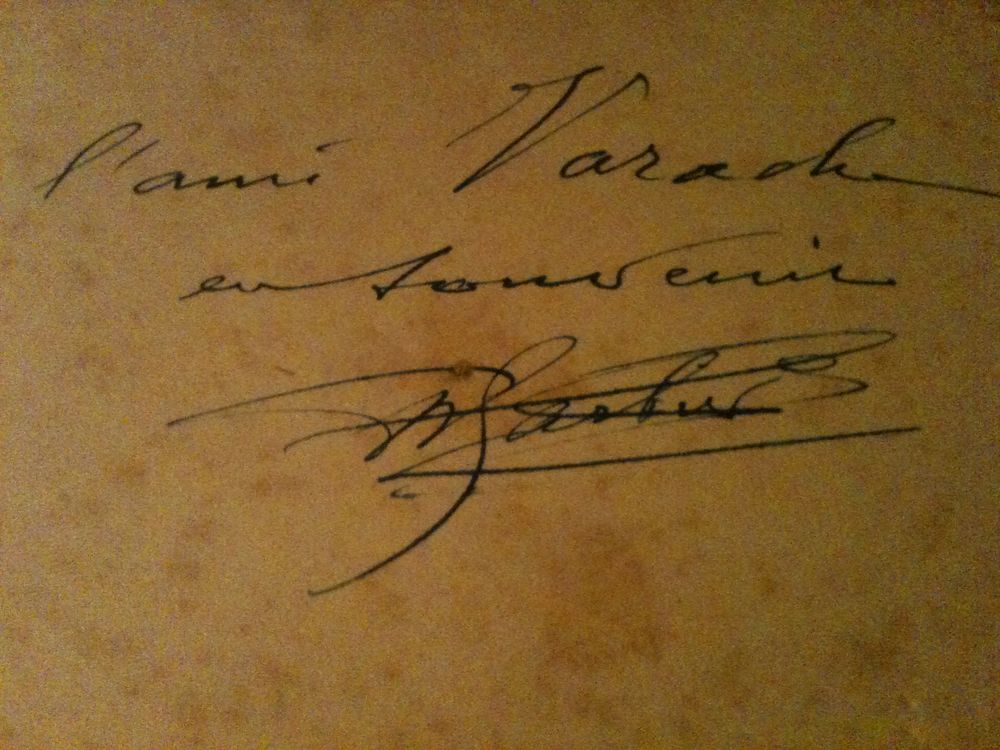 l'ami Varach
en souvenir